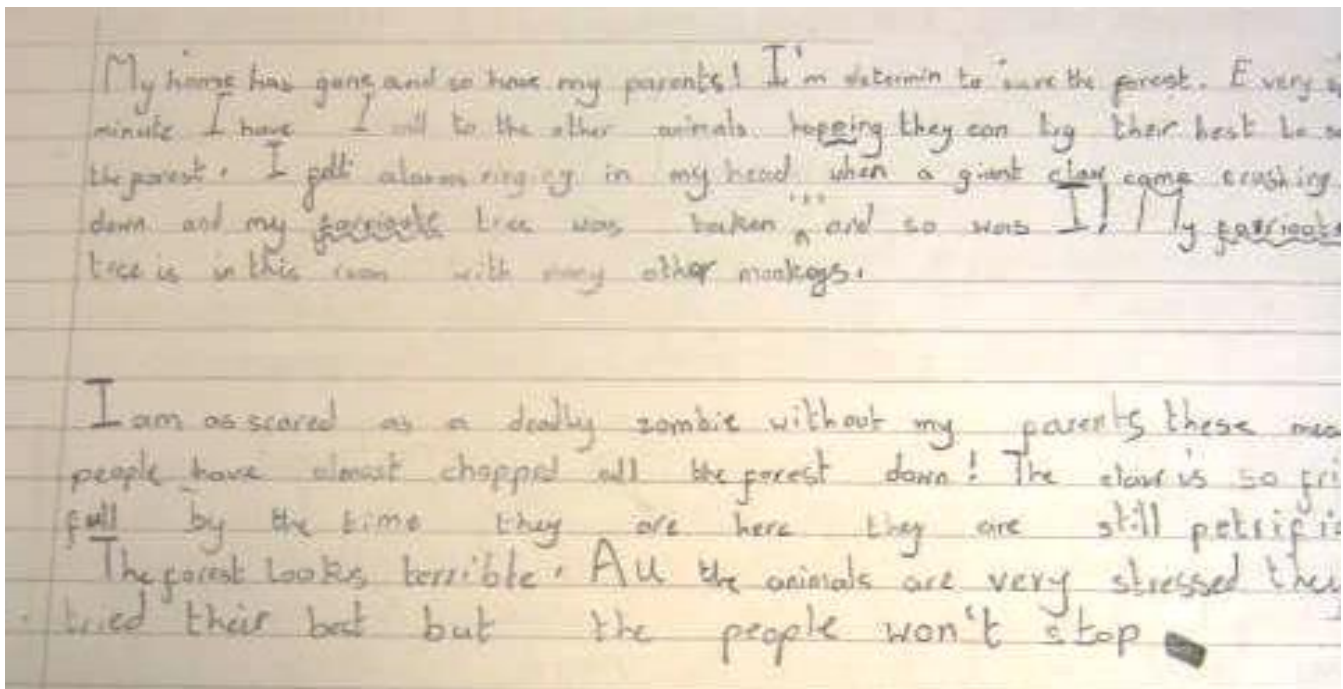 My home has gone and so have my parents! I'm determin to save the forest. Every
minute I have I call to the other animals hopeing they can try their best to
the forest. I felt alarms ringing in my head when a giant claw came crashing
down and my tree was taken ... and so was I! My
tree is in this room with many other monkeys.
I am as scared as a deadly zombie without my parents these
people have almost chopped all the forest down! The claw is so
full by the time they are here they are still
The forest Looks terrible. All the animals are very stressed
tried their best but the people won't stop